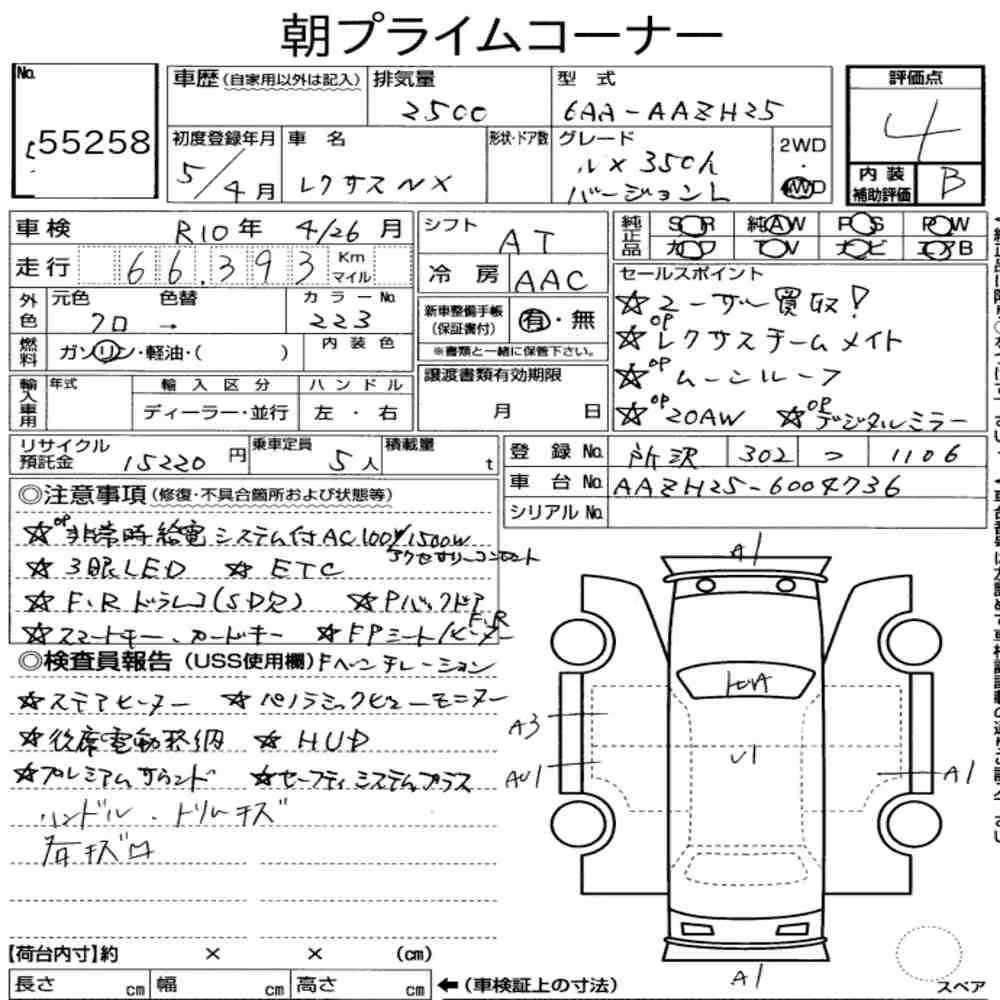 朝プライムコーナー
No.
55258
車歴(自家用以外は記入)
排気量
2500
型 式
6AA-AAZH25
評価点
4
初度登録年月
5/4月
車 名
レクサスNX
形状・ドア数
グレード
NX 350h
バージョンL
2WD
・
4WD
内装
補助評価
B
車検 R10年 4/26月
走行 66,393 Km
マイル
シフト
AT
冷 房 AAC
純正品
SR 純AW PS PW
カワ TV ナビ エアB
外色
元色 色替
クロ →
カラーNo.
223
燃料
ガソリン・軽油・( )
内 装 色
新車整備手帳
(保証書付)
有・無
※書類と一緒に保管下さい。
セールスポイント
☆ユーザー買取!
☆OPレクサスチームメイト
☆OPムーンルーフ
☆OP20AW ☆OPデジタルミラー
輸入車用
年式
輸 入 区 分
ディーラー・並行
ハ ン ド ル
左 ・ 右
譲渡書類有効期限
月 日
リサイクル
預託金
15220円
乗車定員
5人
積載量
t
登 録 No. 所沢 302 つ 1106
車 台 No. AAZH25-6004736
シリアル No.
◎注意事項(修復・不具合箇所および状態等)
☆OP非常時給電システム付AC100V/1500W
アクセサリーコンセント
☆3眼LED ☆ETC
☆F、Rドラレコ(SD欠) ☆Pバックドア
☆スマートキー、カードキー ☆FPシート/ヒーター
F、R
◎検査員報告(USS使用欄)Fベンチレーション
☆ステアヒーター ☆パノラミックビューモニター
☆後席電動格納 ☆HUD
☆プレミアムサウンド ☆セーフティシステムプラス
ハンドル、トリムキズ
A1
A3
U1
AU1
A1
A1
【荷台内寸】約 × × (cm)
長さ cm 幅 cm 高さ cm ←(車検証上の寸法)
スペア